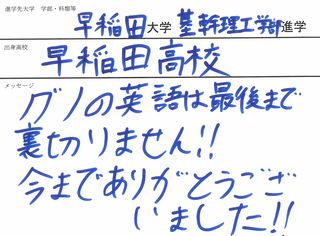 進学先大学 学部・科類等
早稲田大学 基幹理工学部進学
出身高校
早稲田高校
メッセージ
グノの英語は最後まで
裏切りません!!
今までありがとうござ
いました!!